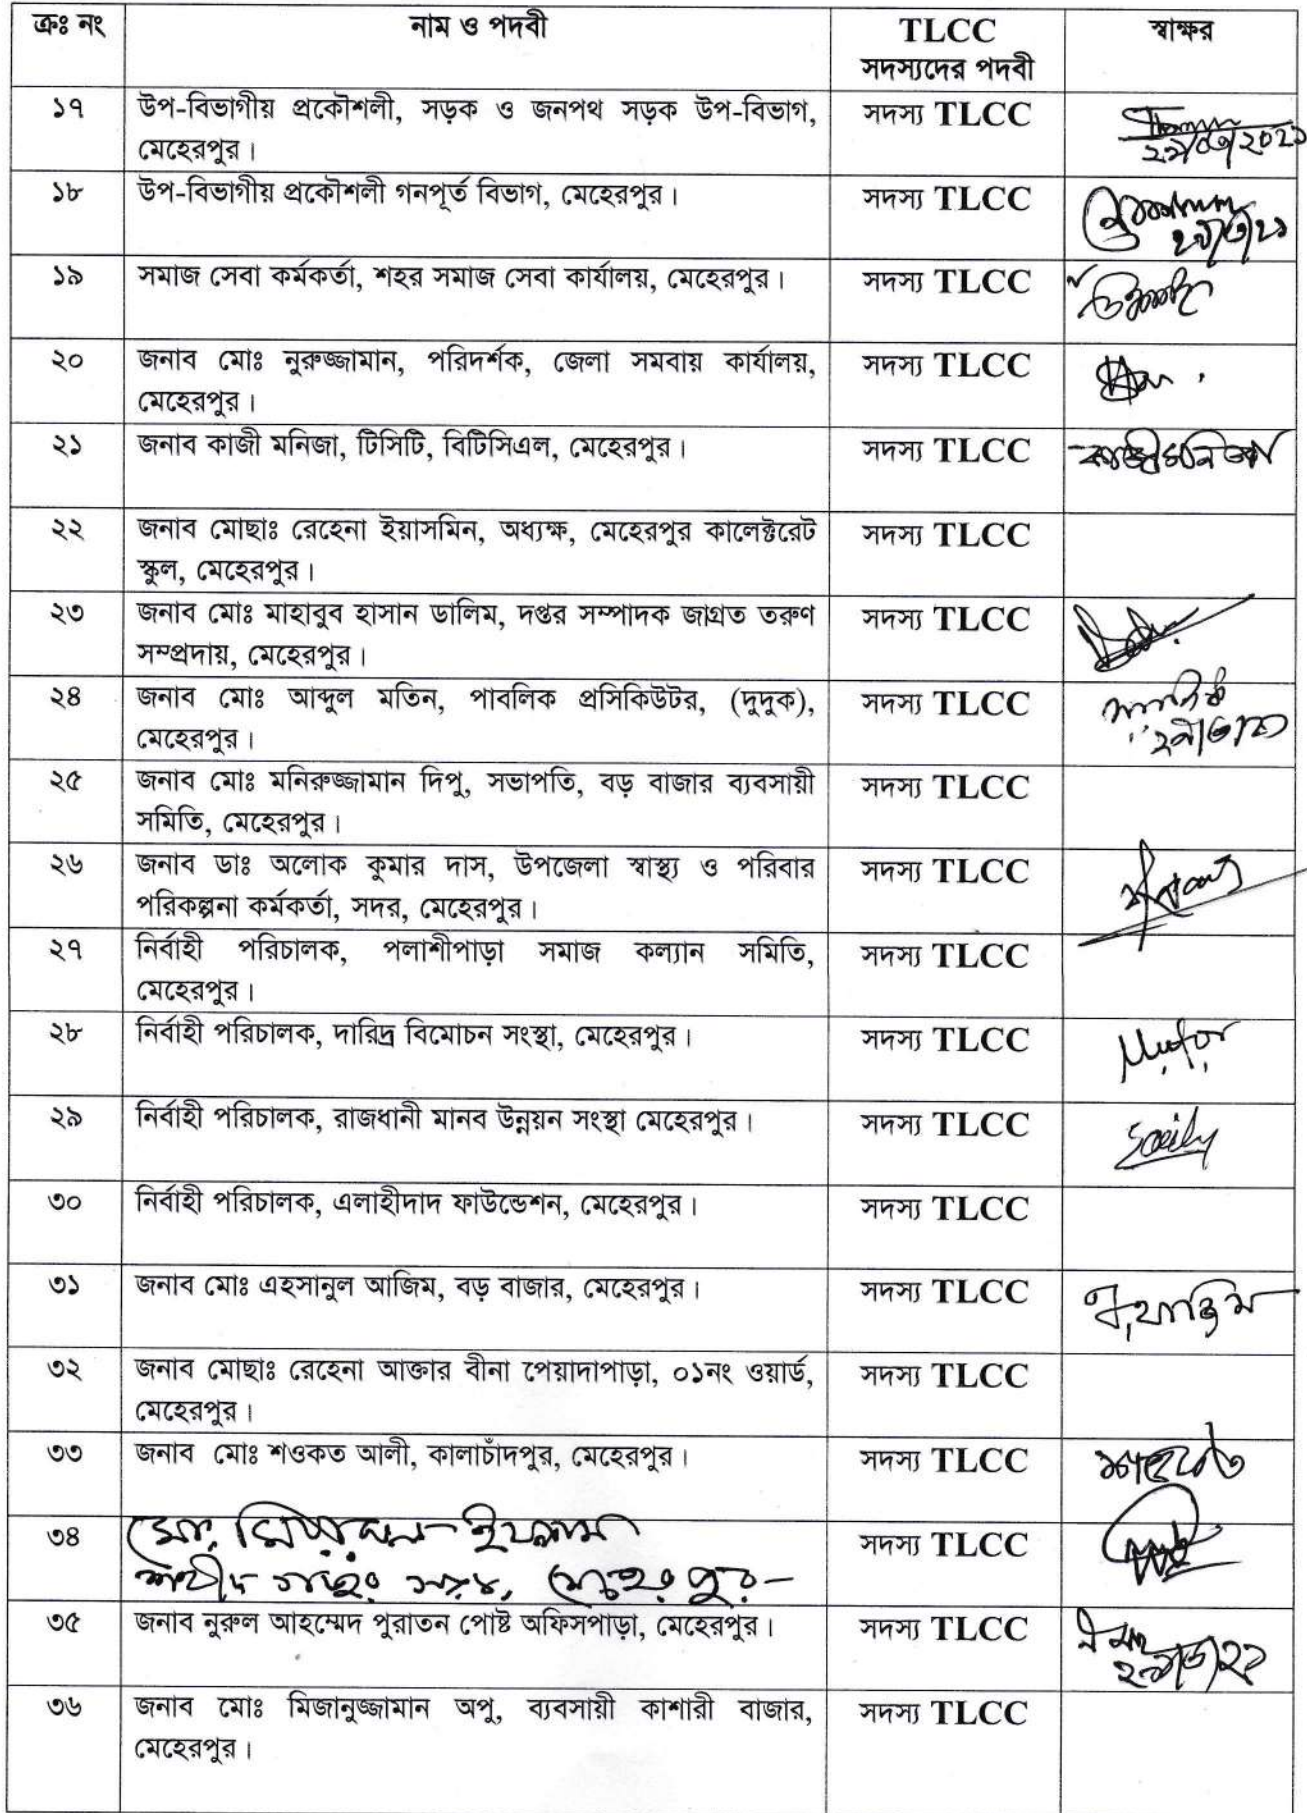 ক্রঃ নং নাম ও পদবী TLCC স্বাক্ষর
সদস্যদের পদবী
১৭ উপ-বিভাগীয় প্রকৌশলী, সড়ক ও জনপথ সড়ক উপ-বিভাগ, সদস্য TLCC
মেহেরপুর।
১৮ উপ-বিভাগীয় প্রকৌশলী গনপূর্ত বিভাগ, মেহেরপুর। সদস্য TLCC
১৯ সমাজ সেবা কর্মকর্তা, শহর সমাজ সেবা কার্যালয়, মেহেরপুর। সদস্য TLCC
২০ জনাব মোঃ নুরুজ্জামান, পরিদর্শক, জেলা সমবায় কার্যালয়, সদস্য TLCC
মেহেরপুর।
২১ জনাব কাজী মনিজা, টিসিটি, বিটিসিএল, মেহেরপুর। সদস্য TLCC কাজী মনিজা
২২ জনাব মোছাঃ রেহেনা ইয়াসমিন, অধ্যক্ষ, মেহেরপুর কালেক্টরেট সদস্য TLCC
স্কুল, মেহেরপুর।
২৩ জনাব মোঃ মাহাবুব হাসান ডালিম, দপ্তর সম্পাদক জাগ্রত তরুণ সদস্য TLCC
সম্প্রদায়, মেহেরপুর।
২৪ জনাব মোঃ আব্দুল মতিন, পাবলিক প্রসিকিউটর, (দুদুক), সদস্য TLCC
মেহেরপুর।
২৫ জনাব মোঃ মনিরুজ্জামান দিপু, সভাপতি, বড় বাজার ব্যবসায়ী সদস্য TLCC
সমিতি, মেহেরপুর।
২৬ জনাব ডাঃ অলোক কুমার দাস, উপজেলা স্বাস্থ্য ও পরিবার সদস্য TLCC
পরিকল্পনা কর্মকর্তা, সদর, মেহেরপুর।
২৭ নির্বাহী পরিচালক, পলাশীপাড়া সমাজ কল্যান সমিতি, সদস্য TLCC
মেহেরপুর।
২৮ নির্বাহী পরিচালক, দারিদ্র বিমোচন সংস্থা, মেহেরপুর। সদস্য TLCC
২৯ নির্বাহী পরিচালক, রাজধানী মানব উন্নয়ন সংস্থা মেহেরপুর। সদস্য TLCC
৩০ নির্বাহী পরিচালক, এলাহীদাদ ফাউন্ডেশন, মেহেরপুর। সদস্য TLCC
৩১ জনাব মোঃ এহসানুল আজিম, বড় বাজার, মেহেরপুর। সদস্য TLCC
৩২ জনাব মোছাঃ রেহেনা আক্তার বীনা পেয়াদাপাড়া, ০১নং ওয়ার্ড, সদস্য TLCC
মেহেরপুর।
৩৩ জনাব মোঃ শওকত আলী, কালাচাঁদপুর, মেহেরপুর। সদস্য TLCC
৩৪ মো, ইসলাম সদস্য TLCC
শহীদ সড়ক, মেহেরপুর-
৩৫ জনাব নুরুল আহম্মেদ পুরাতন পোষ্ট অফিসপাড়া, মেহেরপুর। সদস্য TLCC
৩৬ জনাব মোঃ মিজানুজ্জামান অপু, ব্যবসায়ী কাশারী বাজার, সদস্য TLCC
মেহেরপুর।